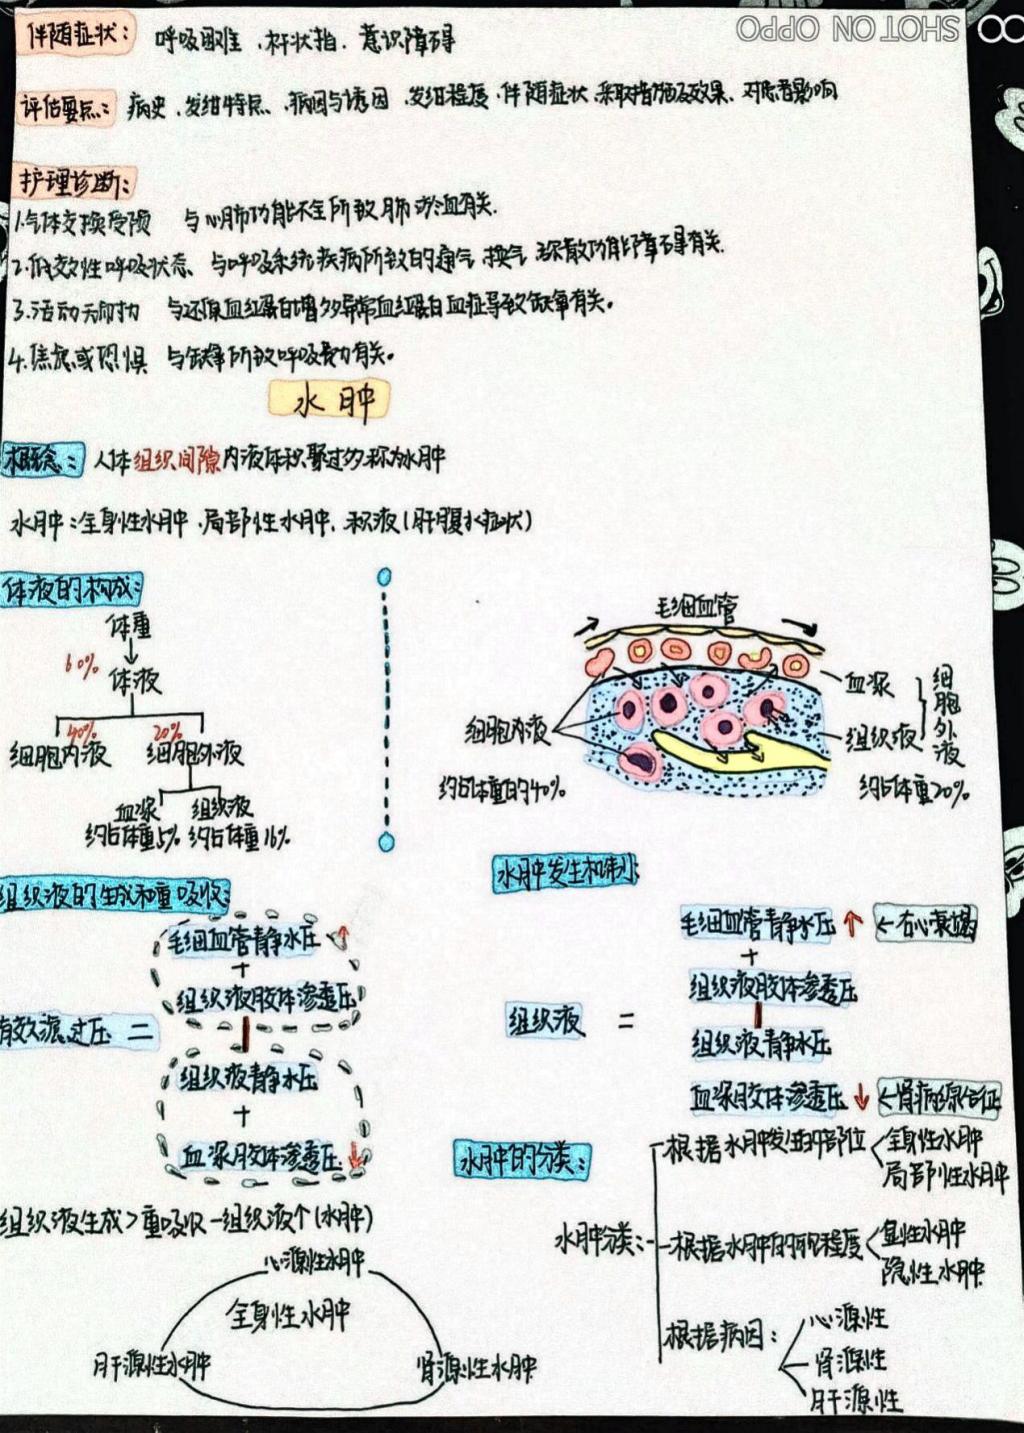 SHOT ON OPPO
伴随症状: 呼吸困难、杵状指、意识障碍
评估要点: 病史、发绀特点、病因与诱因、发绀程度、伴随症状、采取措施及效果、对患者影响
护理诊断:
1.气体交换受损 与心肺功能不全所致肺淤血有关.
2.低效性呼吸状态、与呼吸系统疾病所致的通气、换气、弥散功能障碍有关.
3.活动无耐力 与还原血红蛋白增多异常血红蛋白血症导致缺氧有关。
4.焦虑或恐惧 与缺氧所致呼吸费力有关。
水肿
概念: 人体组织间隙内液体积聚过多称为水肿
水肿:全身性水肿、局部性水肿、积液(肝腹水症状)
体液的构成:
体重
60%
体液
40% 20%
细胞内液 细胞外液
血浆 组织液
约占体重5% 约占体重16%
毛细血管
血浆
组织液
细胞外液
约占体重20%
细胞内液
约占体重的40%
组织液的生成和重吸收:
毛细血管静水压↑
+
组织液胶体渗透压
有效滤过压 =
组织液静水压
+
血浆胶体渗透压↓
组织液生成>重吸收-组织液个(水肿)
心源性水肿
全身性水肿
肝源性水肿 肾源性水肿
水肿发生机制:
毛细血管静水压↑ ←右心衰竭
+
组织液胶体渗透压
组织液 =
组织液静水压
血浆胶体渗透压↓ ←肾病综合征
水肿的分类:
水肿分类:
根据水肿发生的部位
全身性水肿
局部性水肿
根据水肿的程度
显性水肿
隐性水肿
根据病因:
心源性
肾源性
肝源性